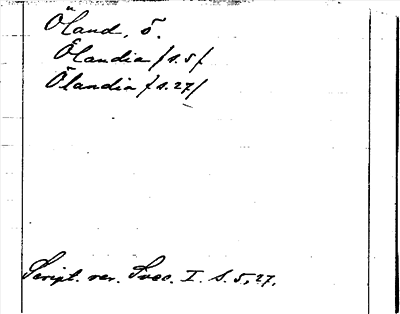 Öland, ö.
Ölandia /s. 5/
Ölandia /s. 27/
Script. rer. Svec. I. S. 5, 27.